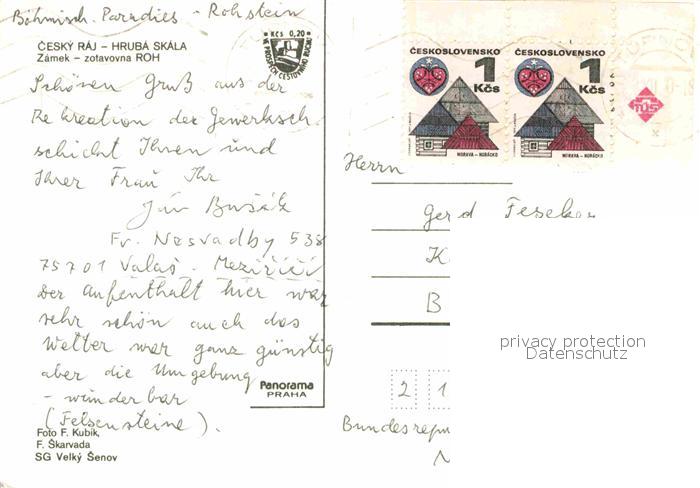 Böhmisch. Paradies - Rohstein
ČESKÝ RÁJ – HRUBÁ SKÁLA
Zámek – zotavovna ROH
Schönen Gruß aus der
Rekreation der Gewerksch.
schickt Ihnen und
Ihrer Frau Ihr
Ján Bušák
Fr. Nesvadby 538
75701 Valaš. Meziříčí
Der Aufenthalt hier war
sehr schön auch das
Wetter war ganz günstig
aber die Umgebung
- wunderbar
(Felsensteine).
Foto F. Kubík,
F. Škarvada
SG Velký Šenov
Panorama
PRAHA
KČS 0,20
VE PROSPĚCH CESTOVNÍHO RUCHU
ČESKOSLOVENSKO
1
Kčs
MORAVA – HORÁCKO
ČESKOSLOVENSKO
1
Kčs
MORAVA – HORÁCKO
TURNOV
Herrn
Gerd Feseker
K
B
privacy protection
Datenschutz
2 1
Bundesrepu